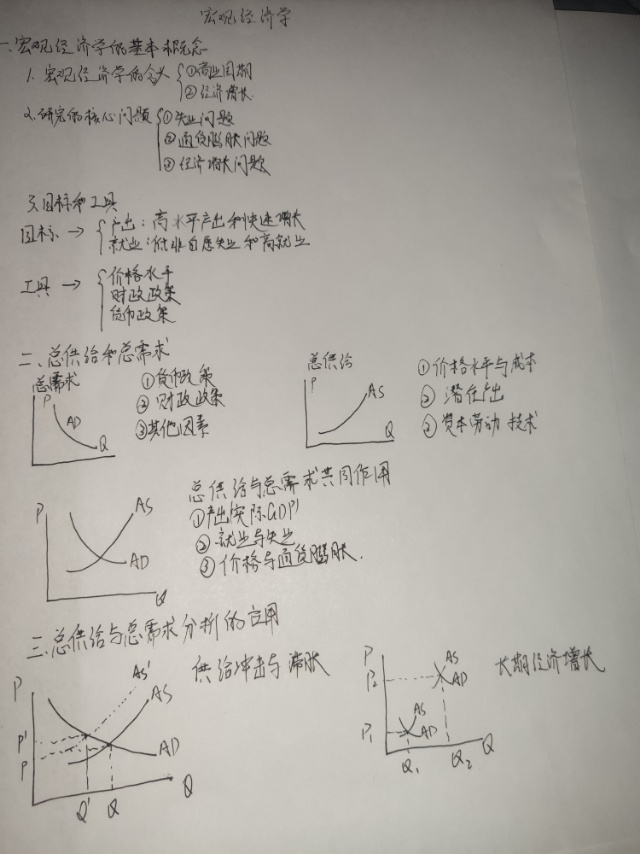 宏观经济学
一.宏观经济学的基本概念
1.宏观经济学的含义 ①商业周期
②经济增长
2.研究的核心问题 ①失业问题
②通货膨胀问题
③经济增长问题
3.目标和工具
目标→ 产出:高水平产出和快速增长
就业:低非自愿失业和高就业
工具→ 价格水平
财政政策
货币政策
二、总供给和总需求
总需求 ①货币政策
②财政政策
③其他因素
P AD Q
总供给 ①价格水平与成本
②潜在产出
③资本劳动 技术
P AS Q
总供给与总需求共同作用
①产出实际GDP
②就业与失业
③价格与通货膨胀.
P AS AD Q
三.总供给与总需求分析的应用
供给冲击与滞胀
P AS' AS
P'
P AD
Q' Q Q
长期经济增长
P AS
P2 AD
AS
P1 AD Q
Q1 Q2